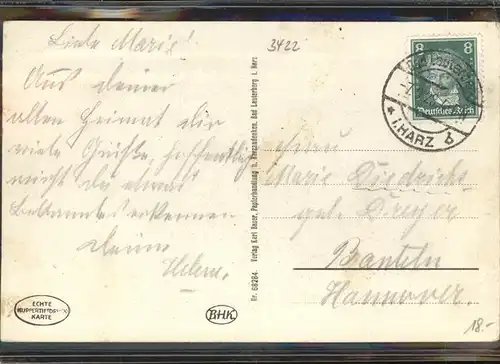 Liebe Marie!
Aus deiner
alten Heimat dir
viele Grüsse, hoffentlich
Deine
Helene.
3422
8 8
Deutsches Reich
* i. HARZ b
Frau
Marie Diedrichs
geb. Dreyer
Banteln
Hannover.
Nr. 68284. Verlag Karl Bauer, Papierhandlung u. Bad Lauterberg i. Harz
ECHTE
KUPFERTIEFDRUCK
KARTE
BHK
18.-